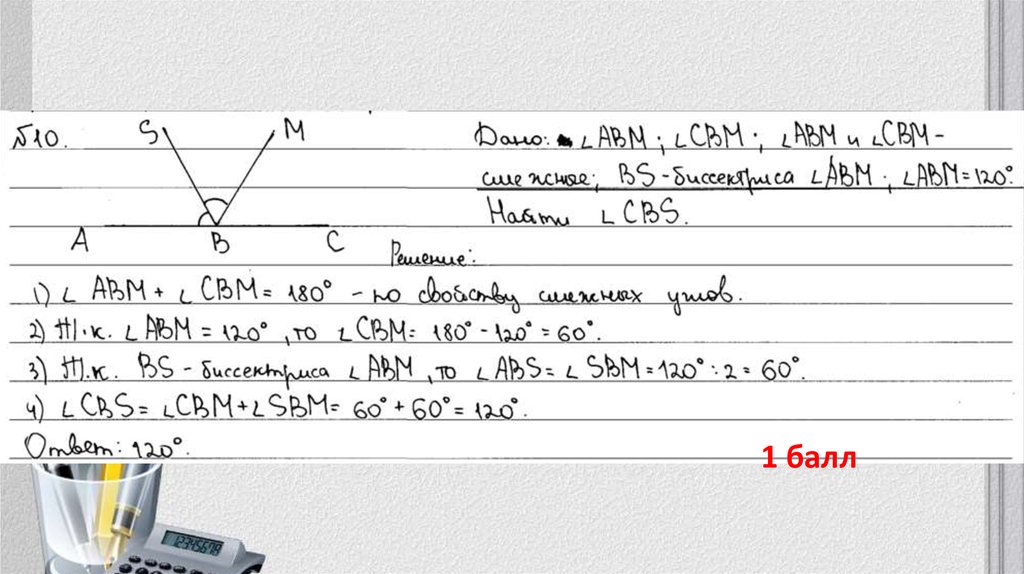 №10.
S M
A B C
Дано: ∠ABM; ∠CBM; ∠ABM и ∠CBM -
смежные; BS-биссектриса ∠ABM; ∠ABM=120°.
Найти ∠CBS.
Решение:
1) ∠ABM + ∠CBM = 180° - по свойству смежных углов.
2) Т.к. ∠ABM = 120°, то ∠CBM = 180° - 120° = 60°.
3) Т.к. BS - биссектриса ∠ABM, то ∠ABS = ∠SBM = 120° : 2 = 60°.
4) ∠CBS = ∠CBM + ∠SBM = 60° + 60° = 120°.
Ответ: 120°.
1 балл
12345678